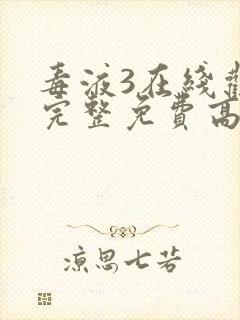 毒液3在线
完整免費高
凉思七若